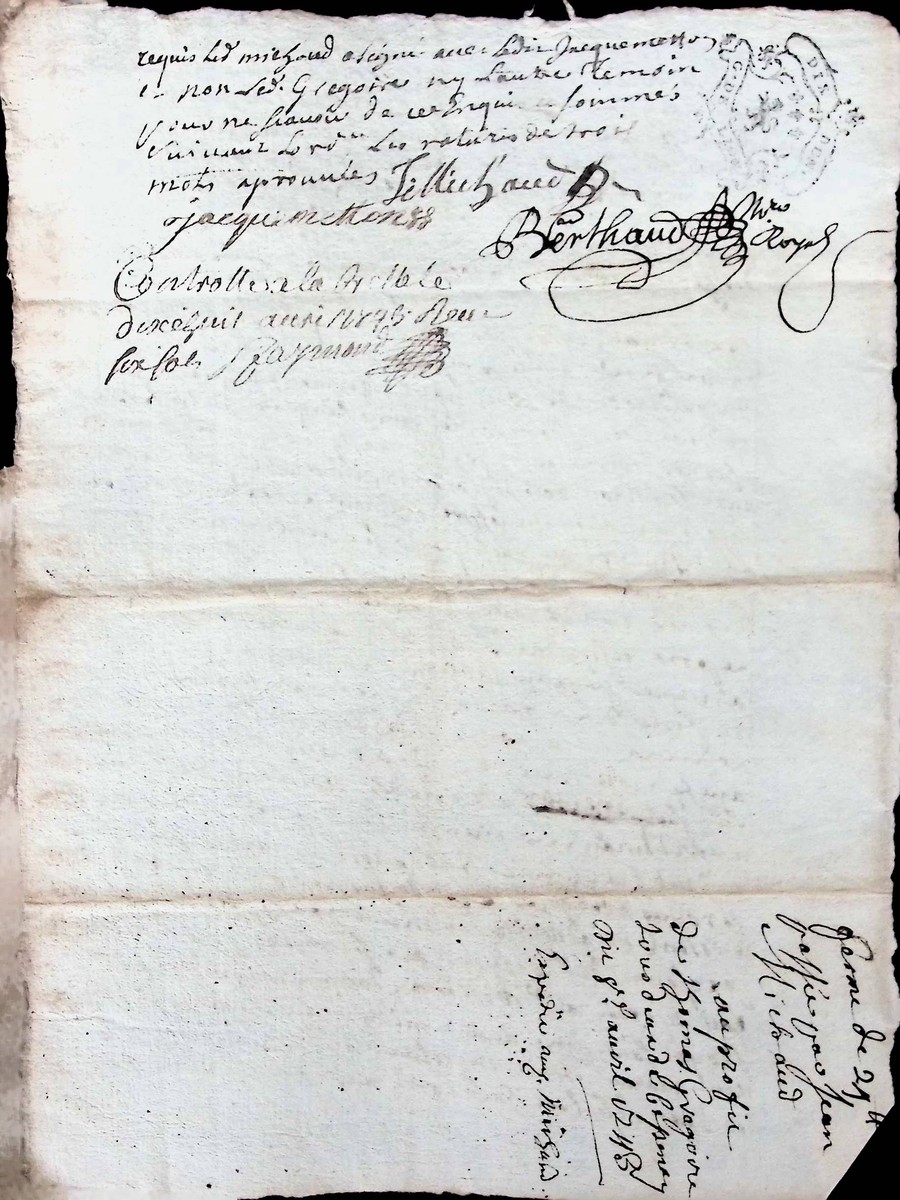 requis led michaud a signé avec ledit Jacquemetton
et non led. Gregoire ny l'autre temoin
pour ne scavoir de ce enquis et sommés
suivant l'ord^ce les ratures de trois
mots aprouvées J Michaud
Jacquemetton
Berthaud No^re Royal
Controllé a la
dixehuit avril 1743 Reçu
six sols Raymond
ferme de 25 ^tt
passée par Jean
Michaud
au profit
de Thomas Gregoire
du 8^e avril 1743
Expedié aud. Michaud